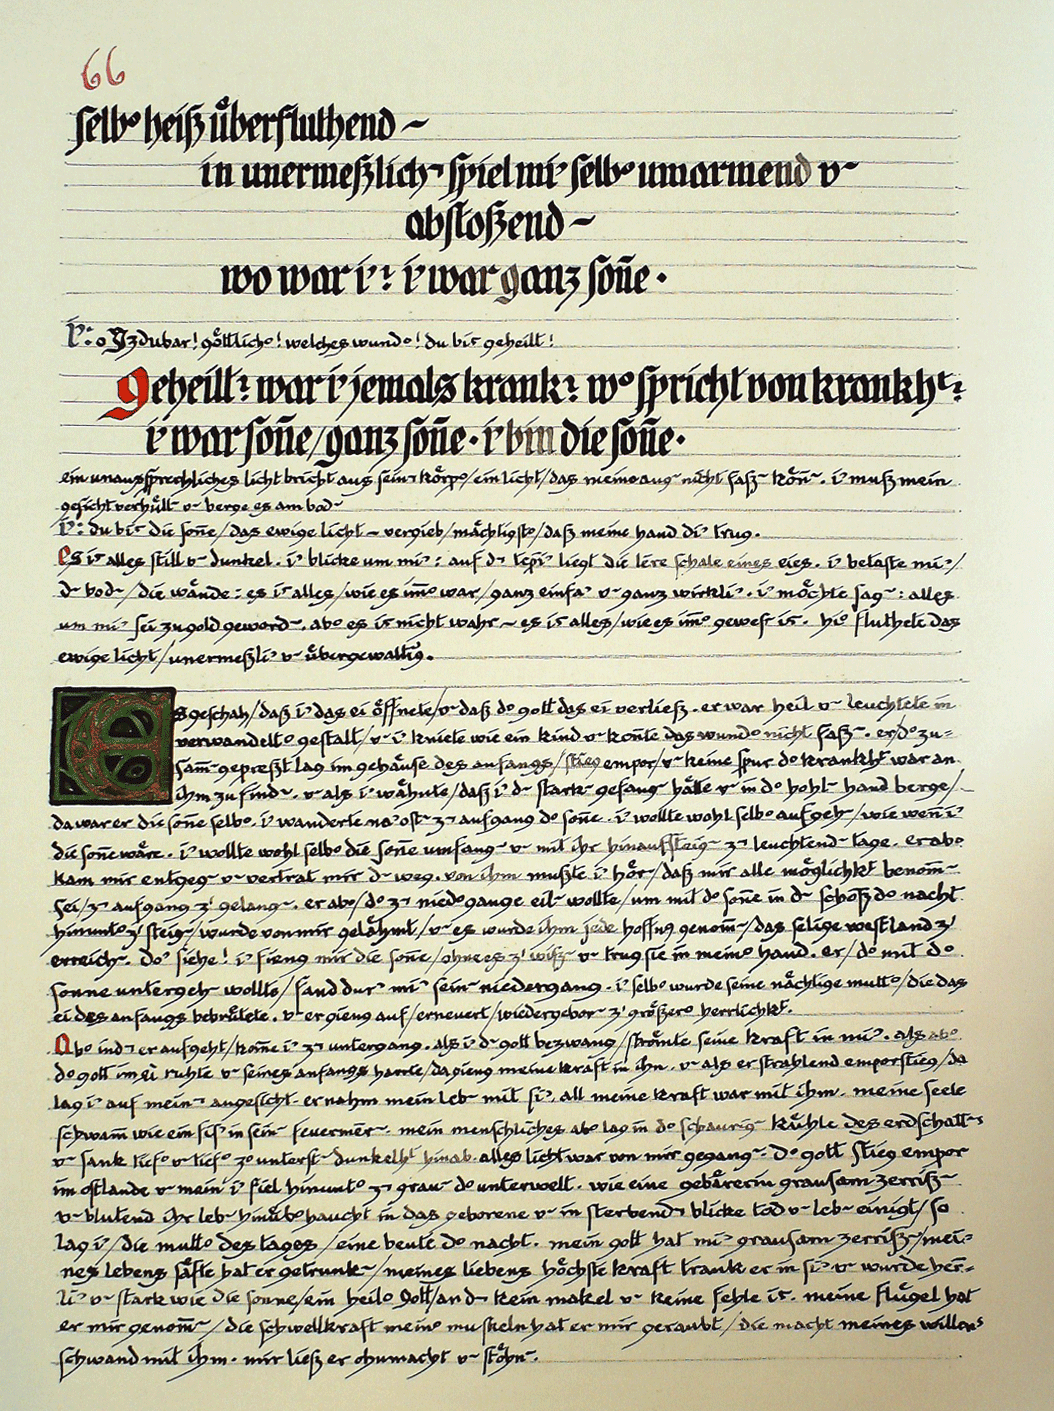 66
selb' heiß überfluthend –
in unermeßlich' spiel mi' selb' umarmend v~
abstoßend –
wo war i'? i' war ganz soñe.
i': o Izdubar! göttlich'! welches wund'! du bis geheilt!
geheilt? war i' jemals krank? w' spricht von krankht?
i' war soñe/ganz soñe. i' bin die soñe.
ein unaussprechliches licht bricht aus sein' körp'/ein licht/das mein' aug~ nicht faß~ köñ~. i' muß mein
gesicht verhüll~ v~ berge es am bod~
i': du bis die soñe/das ewige licht – vergieb/mächtigst'/daß meine hand di' trug.
es is alles still v~ dunkel. i' blicke um mi': auf d' tepi' liegt die lere schale eines eies. i' betaste mi'/
d~ bod~/die wände: es is alles/wie es im̃' war/ganz einfa' v~ ganz wirkli'. i' möchte sag~: alles
um mi' sei zu gold geword~. ab' es is nicht wahr – es is alles/wie es im̃' gewes~ is. hi' fluthete das
ewige licht/unermeßli' v~ übergewaltig.
Es geschah/daß i' das ei öffnete/v~ daß d' gott das ei verließ. er war heil v~ leuchtete in
verwandelt' gestalt/v~ i' kniete wie ein kind v~ koñte das wund' nicht faß~. er/d' zu-
sam̃~gepreßt lag im gehäuse des anfangs/stieg empor/v~ keine spur d' krankht war an
ihm zu find~. v~ als i' wähnte/daß i' d~ stark~ gefang~ hätte v~ in d' hohl~ hand berge/
da war er die soñe selb'. i' wanderte na' ost~ z' aufgang d' soñe. i' wollte wohl selb' aufgeh~/wie weñ i'
die soñe wäre. i' wollte wohl selb' die soñe umfang~ v~ mit ihr hinaufsteig~ z' leuchtend~ tage. er ab'
kam mir entgeg~ v~ vertrat mir d~ weg. von ihm mußte i' hör~/daß mir alle möglichkt benom̃~
sei/z' aufgang z' gelang~. er ab'/d' z' nied'gange eil~ wollte/um mit d' soñe in d~ schoß d' nacht
hinunt' z' steig~/wurde von mir gelähmt/v~ es wurde ihm jede hoffng genom̃~/das selige westland z'
erreich~. do' siehe! i' fieng mir die soñe/ohne es z' wiß~ v~ trug sie in mein' hand. er/d' mit d'
sonne untergeh~ wollte/fand dur' mi' sein~ niedergang. i' selb' wurde seine nächtige mutt'/die das
ei des anfangs bebrütete. v~ er gieng auf/erneuert/wiedergebor~ z' größer' herrlichkt.
Ab' ind' er aufgeht/kom̃e i' z' untergang. als i' d~ gott bezwang/strömte seine kraft in mi'. als ab'
d' gott im ei ruhte v~ seines anfangs harrte/da gieng meine kraft in ihn. v~ als er strahlend emporstieg/da
lag i' auf mein' angesicht. er nahm mein leb~ mit si'. all meine kraft war mit ihm. meine seele
schwam̃ wie ein fis' in sein' feuermer. mein menschliches ab' lag in d' schaurig~ kühle des erdschatt~s
v~ sank tief' v~ tief' z' unterst~ dunkelht hinab. alles licht war von mir gegang~. d' gott stieg empor
im ostlande v~ mein' i' fiel hinunt' z' grau~ d' unterwelt. wie eine gebärerin grausam zerriß~
v~ blutend ihr leb~ hinüb'haucht in das geborene v~ in sterbend' blicke tod v~ leb~ einigt/so
lag i'/die mutt' des tages/eine beute d' nacht. mein gott hat mi' grausam zerriß~/mei-
nes lebens säfte hat er getrunk~/meines liebens höchste kraft trank er in si' v~ wurde herr-
li' v~ stark wie die sonne/ein heil' gott/an d' kein makel v~ keine fehle is. meine flügel hat
er mir genom̃~/die schwellkraft mein' muskeln hat er mir geraubt/die macht meines willens
schwand mit ihm. mir ließ er ohnmacht v~ stöhn~.